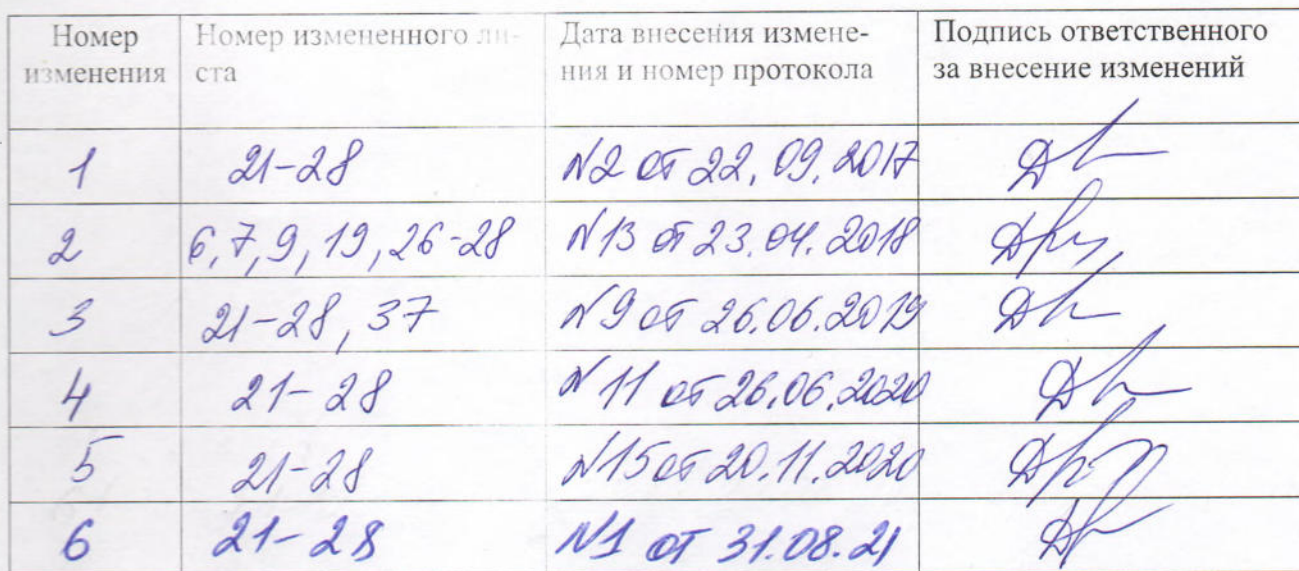 Номер изменения Номер измененного ли-ста Дата внесения измене-ния и номер протокола Подпись ответственного за внесение изменений
1 21-28 №2 от 22.09.2017
2 6,7,9,19,26-28 №13 от 23.04.2018
3 21-28, 37 №9 от 26.06.2019
4 21-28 №11 от 26.06.2020
5 21-28 №15 от 20.11.2020
6 21-28 №1 от 31.08.21